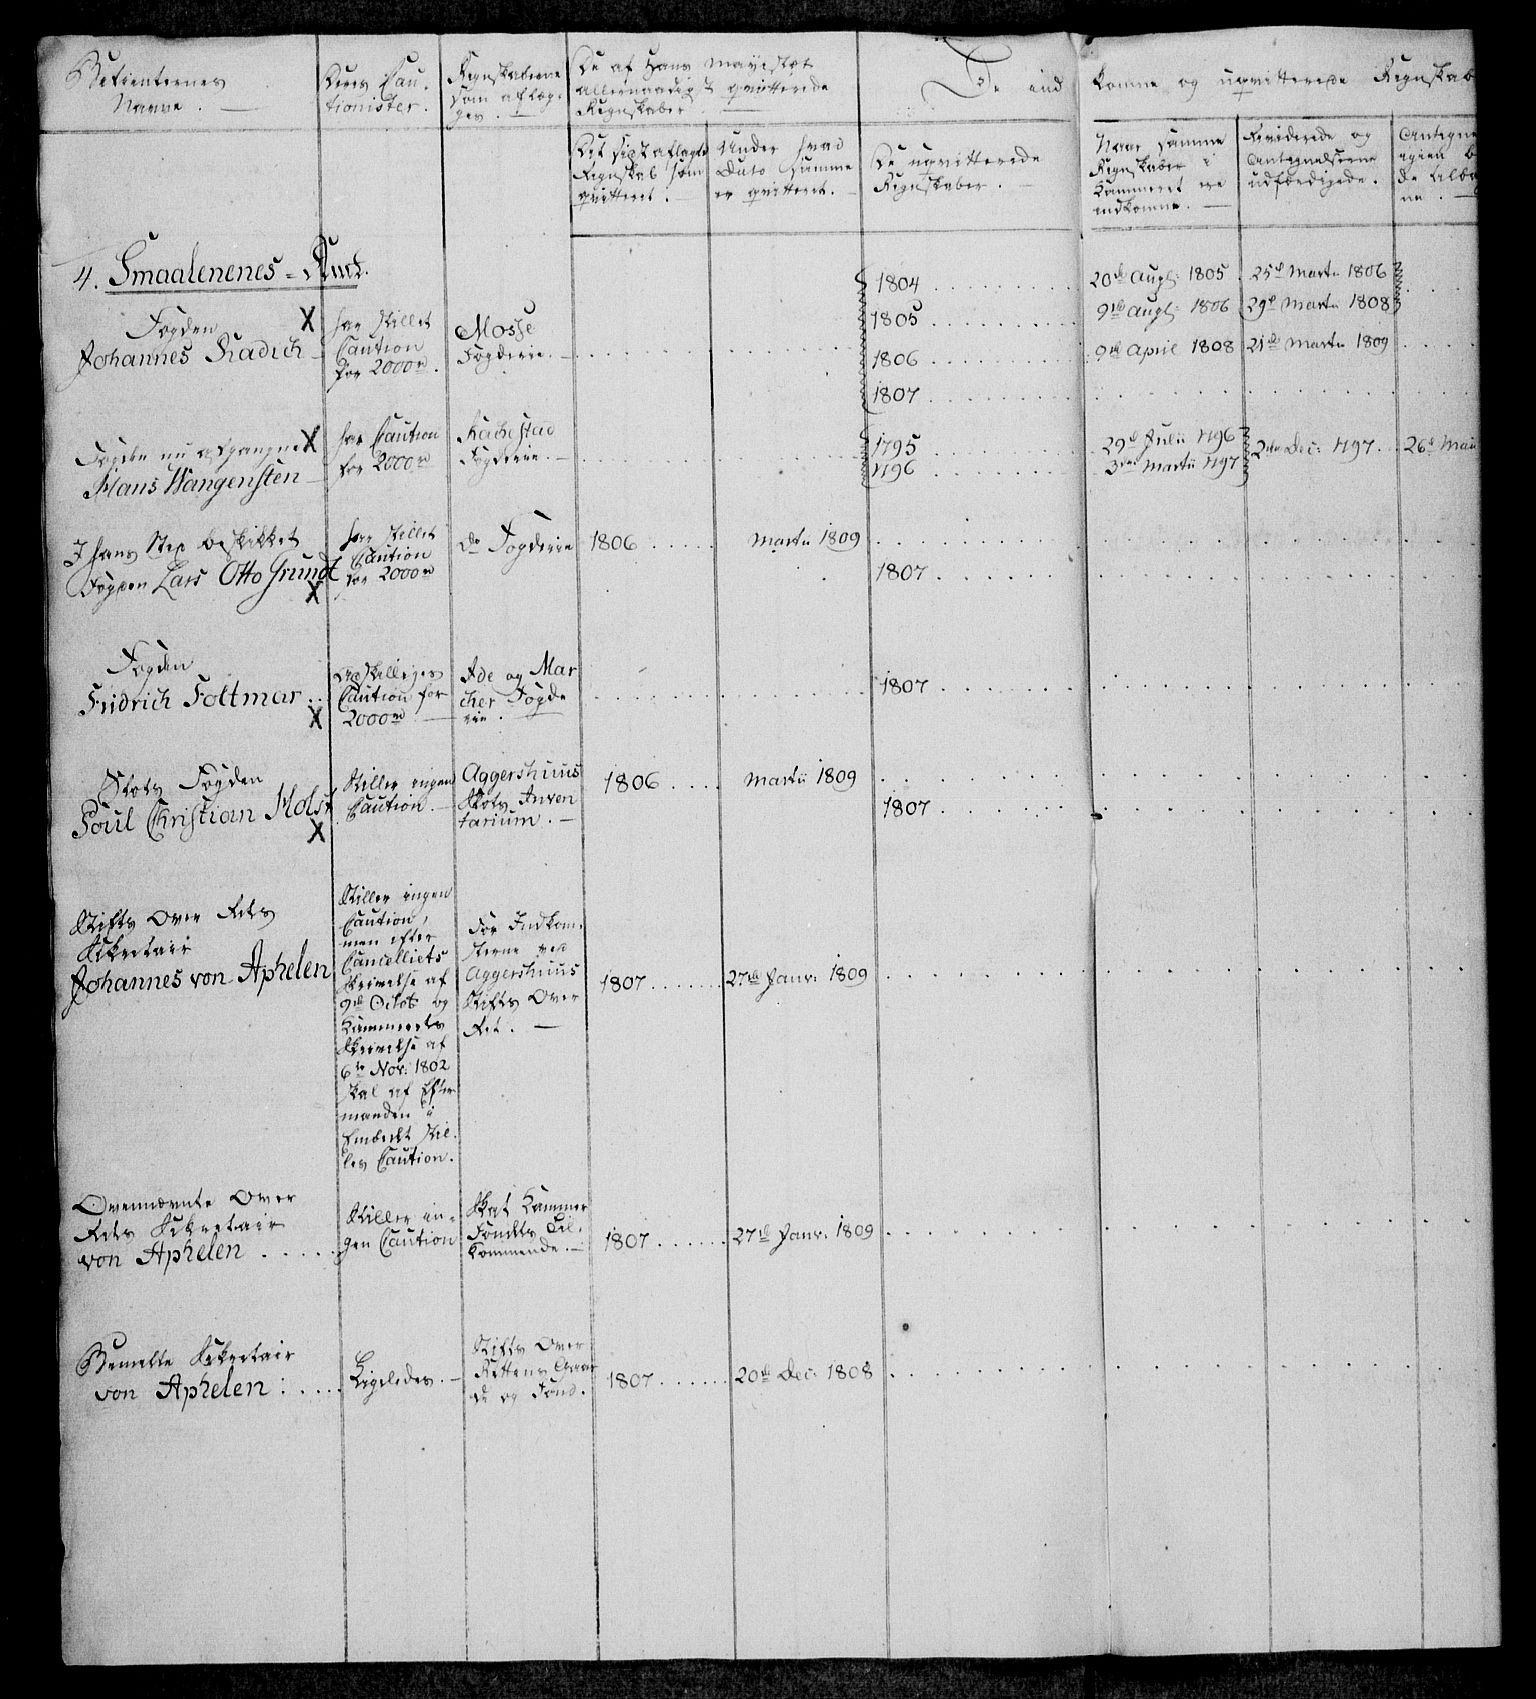 Betienternes
Navne. —
Deres Cau-
tionister.
Regnskaberne
som aflæg-
ges.
De af Hans Mayestæt
allernaadigst qvitterede
Regnskaber.
De ind
komne og uqvitterede Regnskab
Det sidst aflagte
Regnskab som
qvitteret. —
Under hvad
Dato samme
er qvitteret. —
De uqvitterede
Regnskaber. —
Naar samme
Regnskaber i
Kammeret ere
indkomne. —
Reviderede og
Antegnelserne
udfærdigede.
Antegne
igien b
de
ne. —
4. Smaalenenes-Amt.
Fogden X
Johannes Radich
har stillet
Caution
for 2000 rd.
Mosse
Fogderie. —
1804
1805
1806
1807
20de Augt: 1805
9de Augt: 1806
9de April 1808
25de Martii 1806
29de Martii 1808
21de Martii 1809
Fogden nu afgangne X
Hans Wangensten
har Caution
for 2000 rd
Rachestad
Fogderie. —
1795
1796
29de Julii 1796
3die Martii 1797
2den Dec: 1797
26de Maii
I hans Sted beskikket
Fogden Lars Otto Grundt
X
har stillet
Caution
for 2000 rd
do Fogderie
1806
Martii 1809
1807
Fogden
Fridrich Foltmar
X
Caution for
2000 rd
Ide og Mar
cher Fogde
rie.
1807
Slots Fogden
Poul Christian Holst
X
Stiller ingen
Caution. —
Aggershuus
Slots Inven
tarium. —
1806
Martii 1809
1807
Stifts Over Rets
Sekretair
Johannes von Aphelen
Stiller ingen
Caution,
men efter
Cancelliets
Skrivelse af
9de Octobr og
Kammerets
Skrivelse af
6te Nov: 1802
skal af Efter
manden i
Embedet stil-
les Caution.
For Indkom-
sterne ved
Aggershuus
Stifts Over
Ret. —
1807
27de Janv: 1809
Ovennævnte Over
Rets Sekretair
von Aphelen
Stiller in-
gen Caution
Skat Kammer
Fondets Til-
kommende. —
1807
27de Janv: 1809
Bemelte Sekretair
von Aphelen:
Ligeledes. —
Stifts Over
Rettens Gaar
de og Fond.
1807
20de Dec: 1808